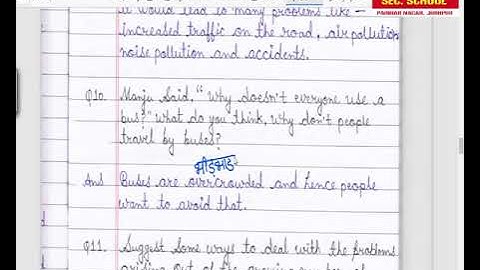 SEC. SCHOOL
PARIHAR NAGAR, JODHPUR
it would lead to many problems like -
increased traffic on the road, air pollution
noise pollution and accidents.
Q10. Manju said, "Why doesn't everyone use a
bus?" What do you think, why don't people
travel by buses?
भीड़भाड़
Ans Buses are overcrowded and hence people
want to avoid that.
Q11. Suggest some ways to deal with the problems
arising out of the growing number of